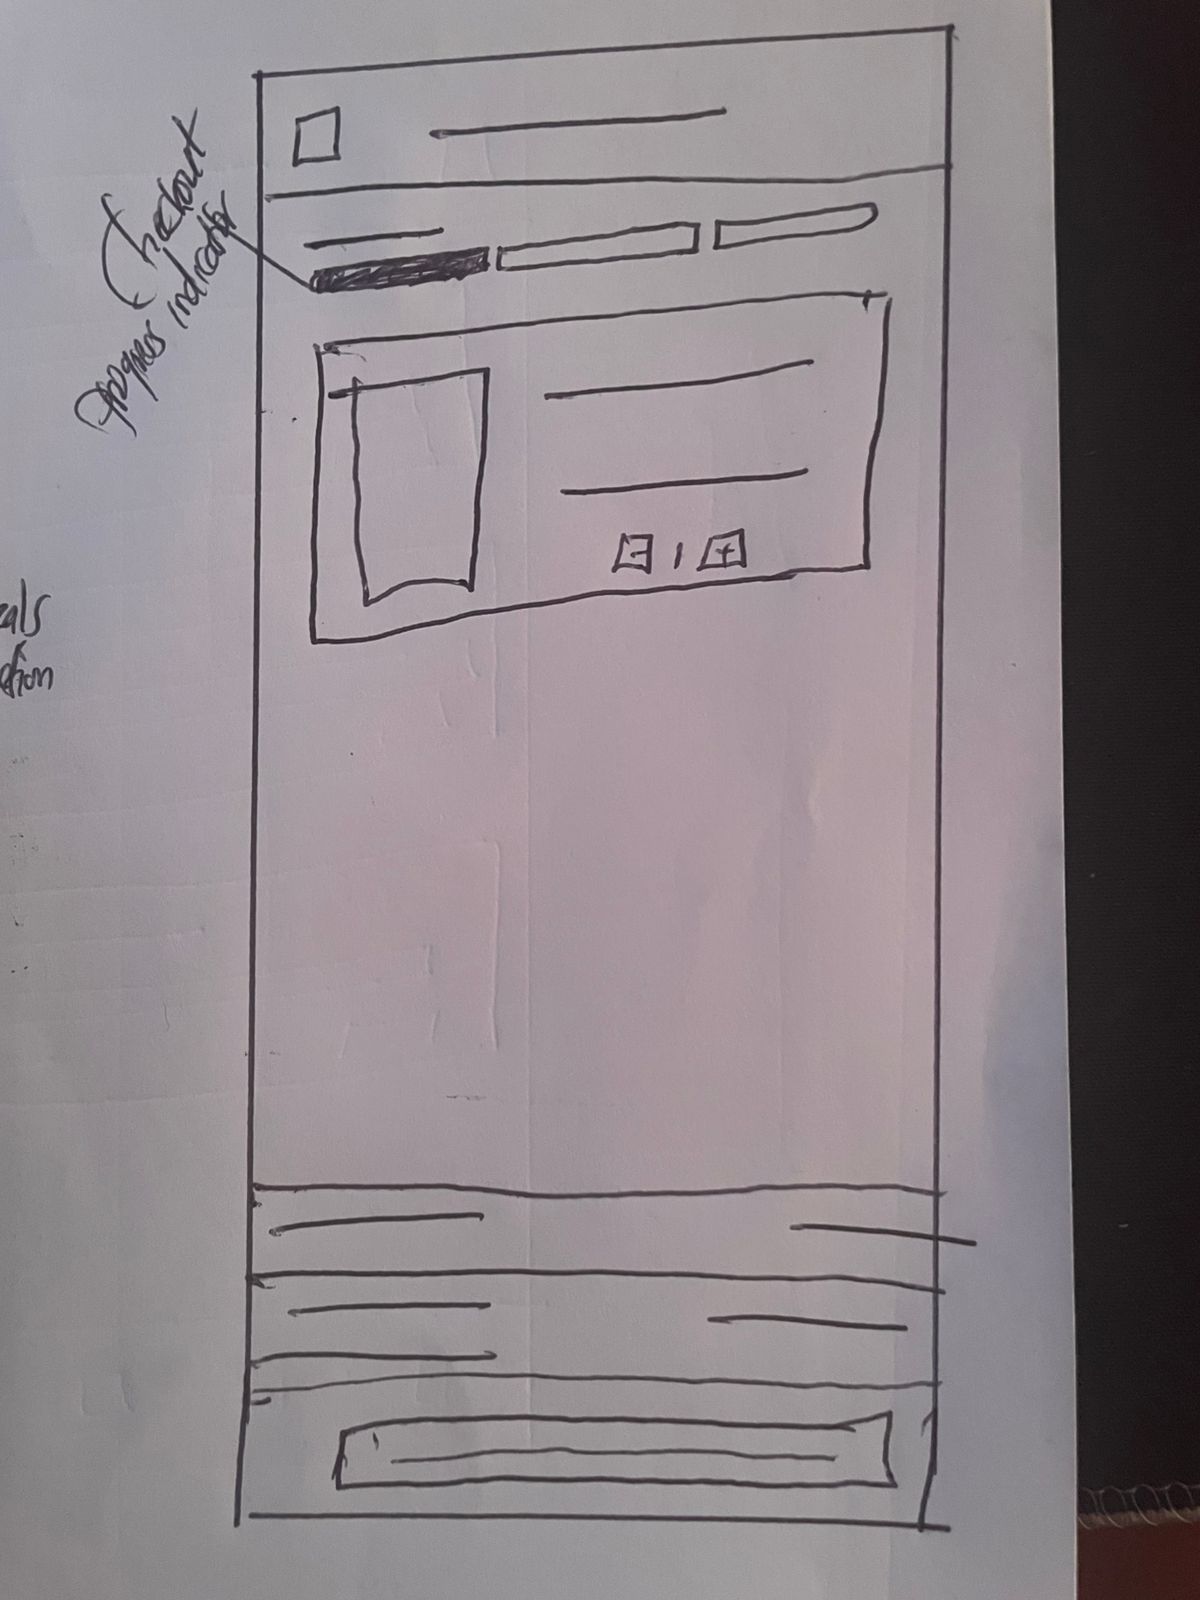 Checkout
Progress indicator
- 1 +
als
tion